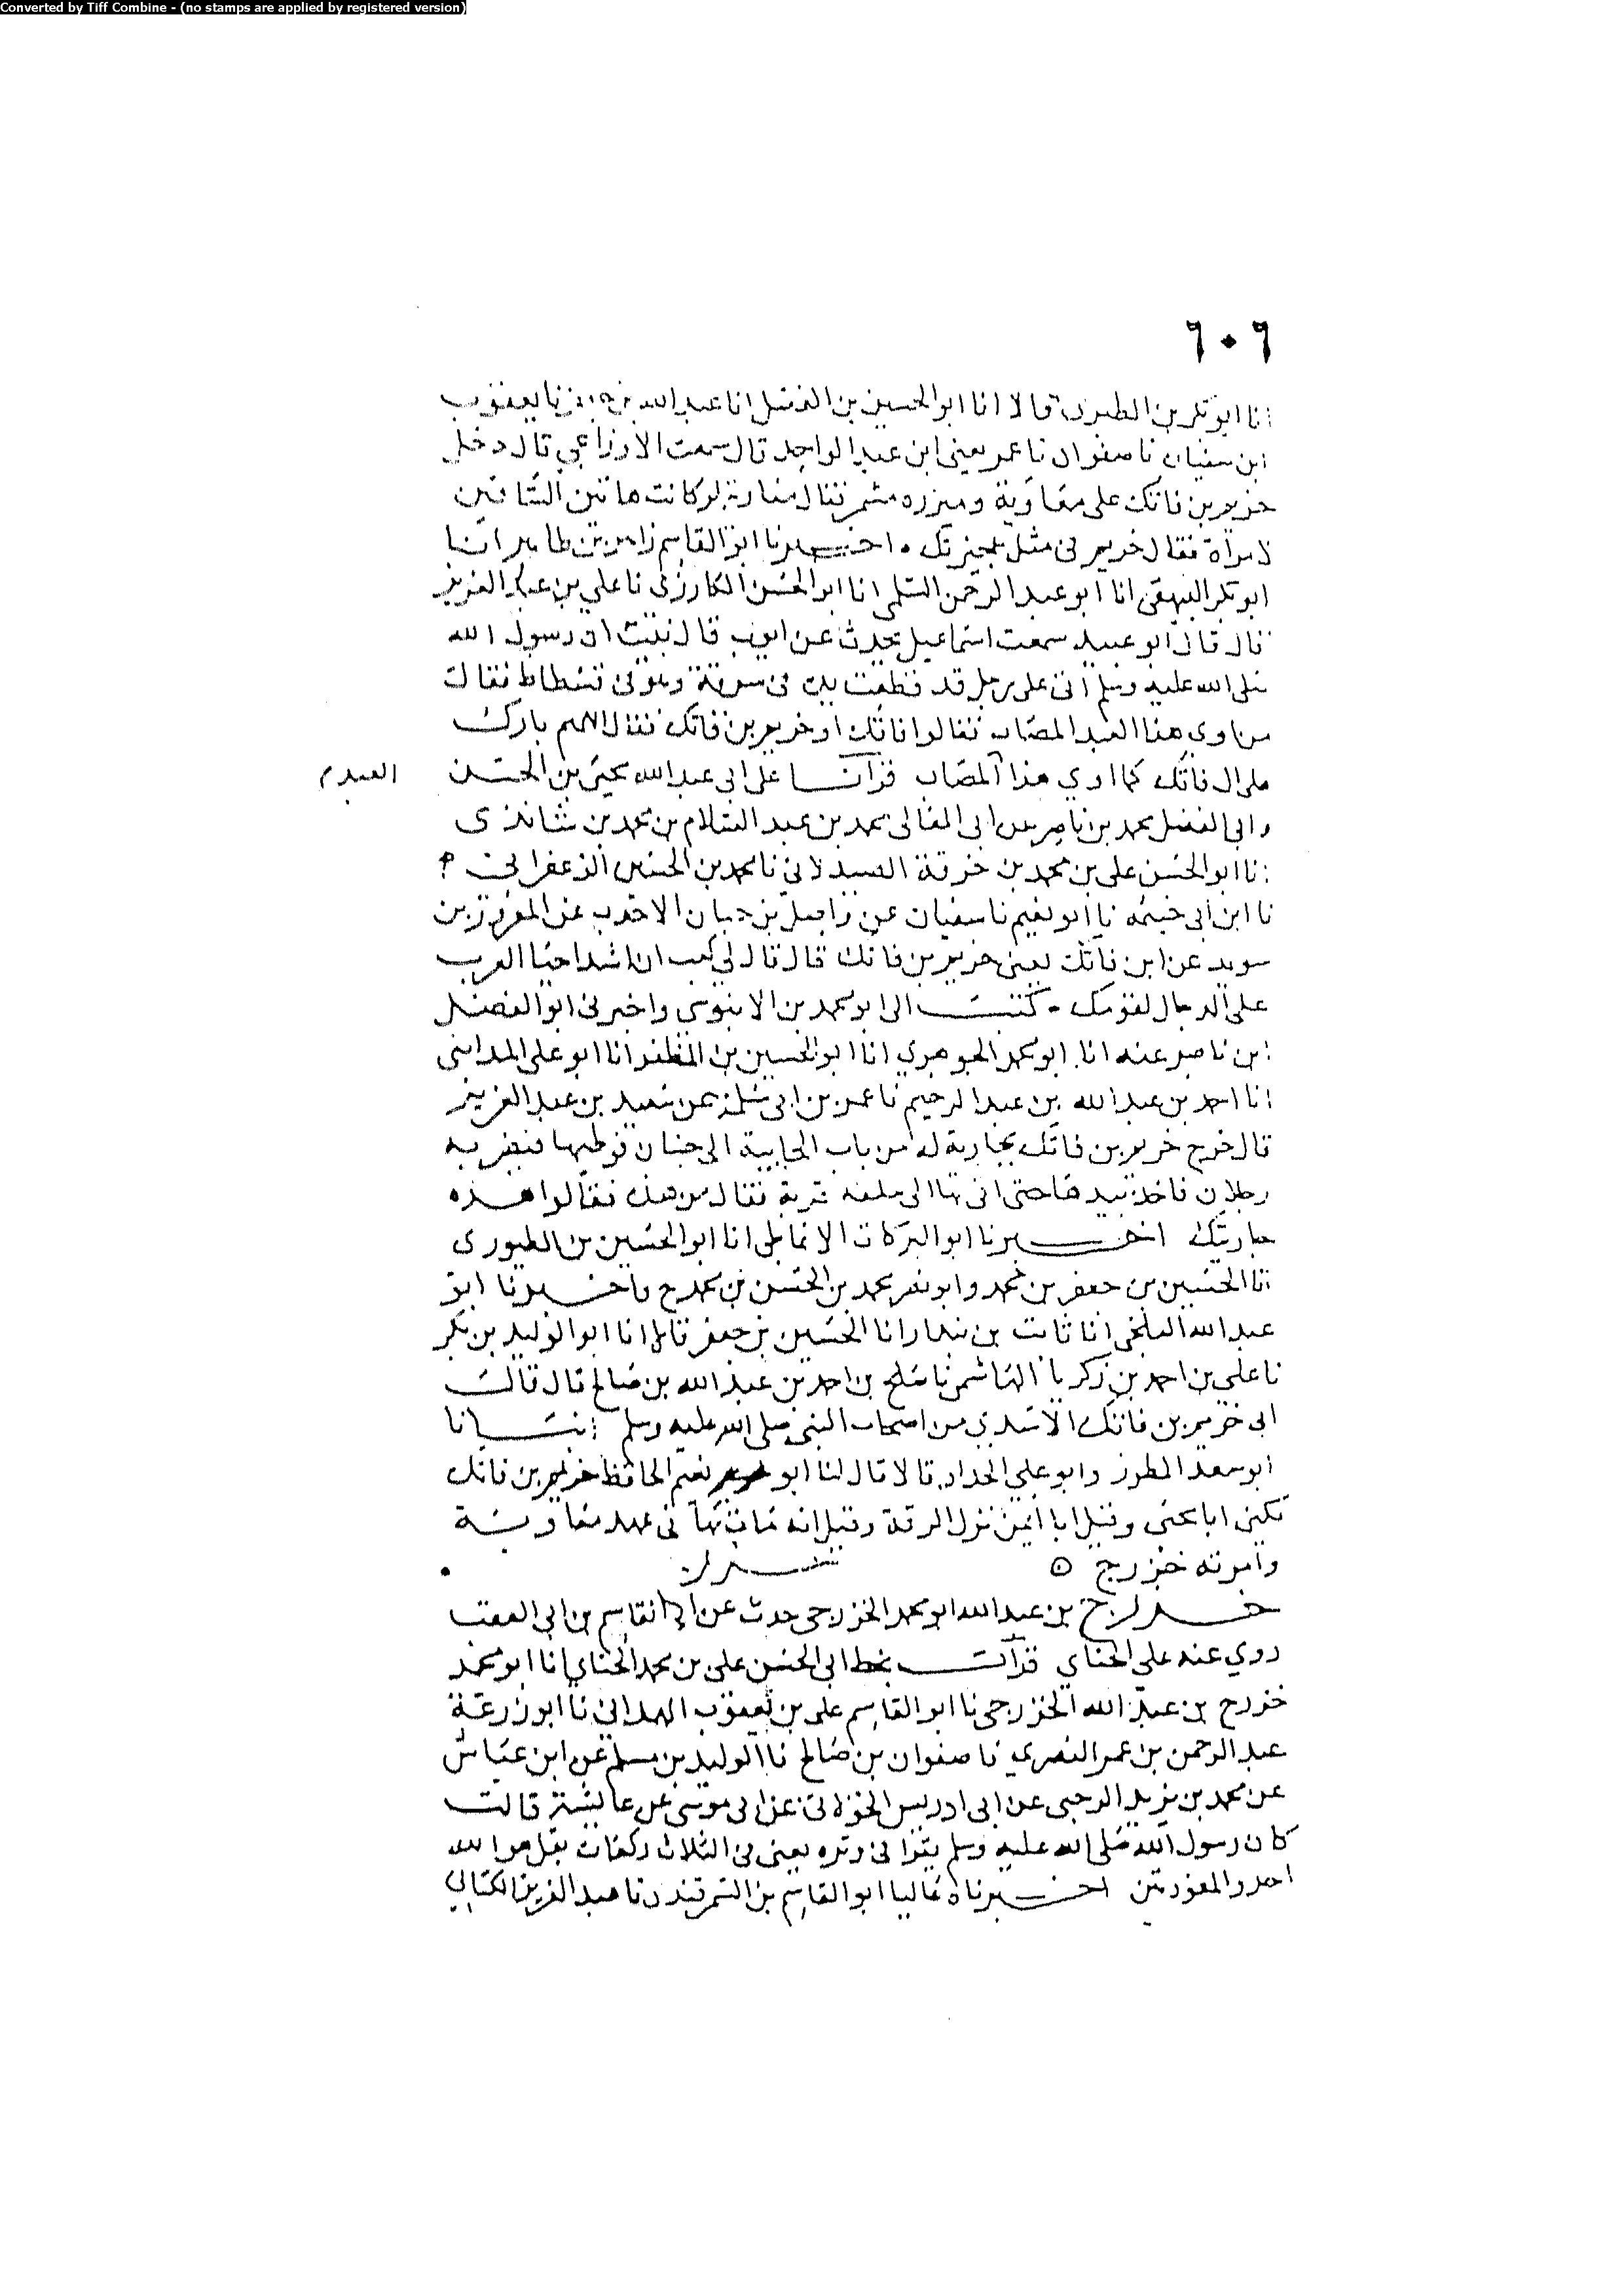 Converted by Tiff Combine - (no stamps are applied by registered version)
٦٠٦
انا ابو بكر بن الطبري قالا انا ابو الحسين بن الفضل انا عبد الله بن جعفر نا يعقوب
ابن سفيان نا صفوان نا عمر يعني ابن عبد الواحد قال سمعت الاوزاعي قال دخل
خريم بن فاتك على معاوية ومئزره مشمر فقال معاوية لو كانت هاتين الساقين
لامرأة فقال خريم في مثل عجيزتك . اخبرنا ابو القاسم زاهر بن طاهر انا
ابو بكر البيهقي انا ابو عبد الرحمن السلمي انا ابو الحسن الكارزي نا علي بن عبد العزيز
قال قال ابو عبيد سمعت اسماعيل يحدث عن ايوب قال نبئت ان رسول الله
صلى الله عليه وسلم اتى على رجل قد قطعت يده في سرقة وهو في فسطاط فقال
من اوى هذا العبد المصاب فقالوا فاتك او خريم بن فاتك فقال اللهم بارك
على ال فاتك كما اوى هذا المصاب قرأنا على ابي عبد الله يحيى بن الحسن
العبد م
وابي الفضل محمد بن ناصر عن ابي المعالي محمد بن عبد السلام بن محمد بن شاندى
انا ابو الحسن علي بن محمد بن خزفة الصيدلاني نا محمد بن الحسين الزعفراني
نا ابن ابي خيثمة نا ابو نعيم نا سفيان عن واصل بن حبان الاحدب عن المعرور بن
سويد عن ابن فاتك يعني خريم بن فاتك قال قال لي كعب ان اشد احيا العرب
على الدجال لقومك . كتب الى ابو محمد بن الابنوسي واخبرني ابو الفضل
ابن ناصر عنه انا ابو محمد الجوهري انا ابو الحسين بن المظفر انا ابو علي المدايني
انا احمد بن عبد الله بن عبد الرحيم نا عمرو بن ابي سلمة عن سعيد بن عبد العزيز
قال خرج خريم بن فاتك بجارية له من باب الجابية الى جنان فوطيها فبصر به
رجلان فاخذ بيدها حتى اتى بها الى حلقة قريبة فقال من هذه فقالوا هذه
جاريتك اخبرنا ابو البركات الانماطي انا ابو الحسين بن الطيوري
انا الحسين بن جعفر بن محمد وابو نصر محمد بن الحسن بن محمد ح واخبرنا ابو
عبد الله البلخي انا ثابت بن بندار انا الحسين بن جعفر قالا انا ابو الوليد بن بكر
نا علي بن احمد بن زكريا الهاشمي نا صالح بن احمد بن عبد الله بن صالح قال قال
ابي خريم بن فاتك الاسدي من اصحاب النبي صلى الله عليه وسلم انبأنا
ابو سعد المطرز وابو علي الحداد قالا قال لنا ابو نعيم الحافظ خريم بن فاتك
يكنى ابا يحيى وقيل ابا ايمن نزل الرقة وقيل انه مات بها في عهد معاوية
وامرته خزرج ٥
خزرج بن عبد الله ابو محمد الخزرجي حدث عن ابي القاسم بن ابي العقب
روى عنه علي الحنائي قرأت بخط ابي الحسن علي بن محمد الحنائي انا ابو محمد
خزرج بن عبد الله الخزرجي نا ابو القاسم علي بن يعقوب الهمداني نا ابو زرعة
عبد الرحمن بن عمر النصري نا صفوان بن صالح نا الوليد بن مسلم عن ابن عياش
عن محمد بن يزيد الرحبي عن ابي ادريس الخولاني عن ابي موسى عن عائشة قالت
كان رسول الله صلى الله عليه وسلم يقرا في وتره يعني في الثلاث ركعات بقل هو الله
احد والمعوذتين اخبرناه عاليا ابو القاسم بن السمرقندي نا عبد العزيز الكتاني